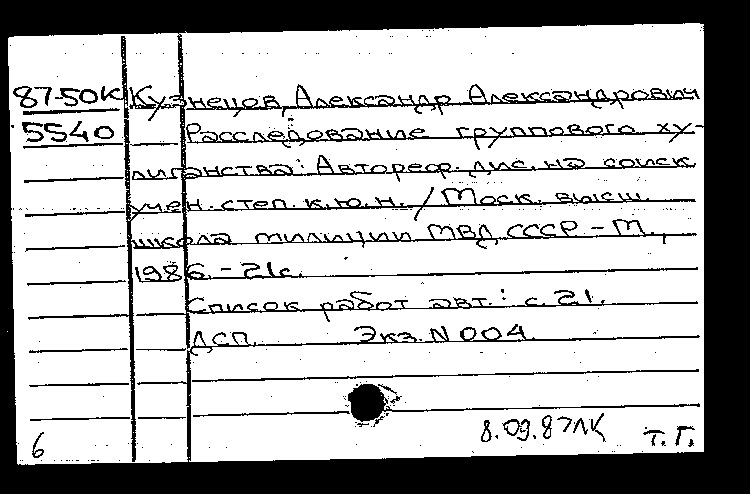 87-50К Кузнецов, Александр Александрович
5540 Расследование группового ху-
лиганства: Автореф. дис. на соиск.
учен. степ. к.ю.н. / Моск. высш.
школа милиции МВД СССР. - М.,
1986. - 21 с.
Список работ авт.: с. 21.
ДСП. Экз. N 004.
8.09.87ЛК т. Г.
6